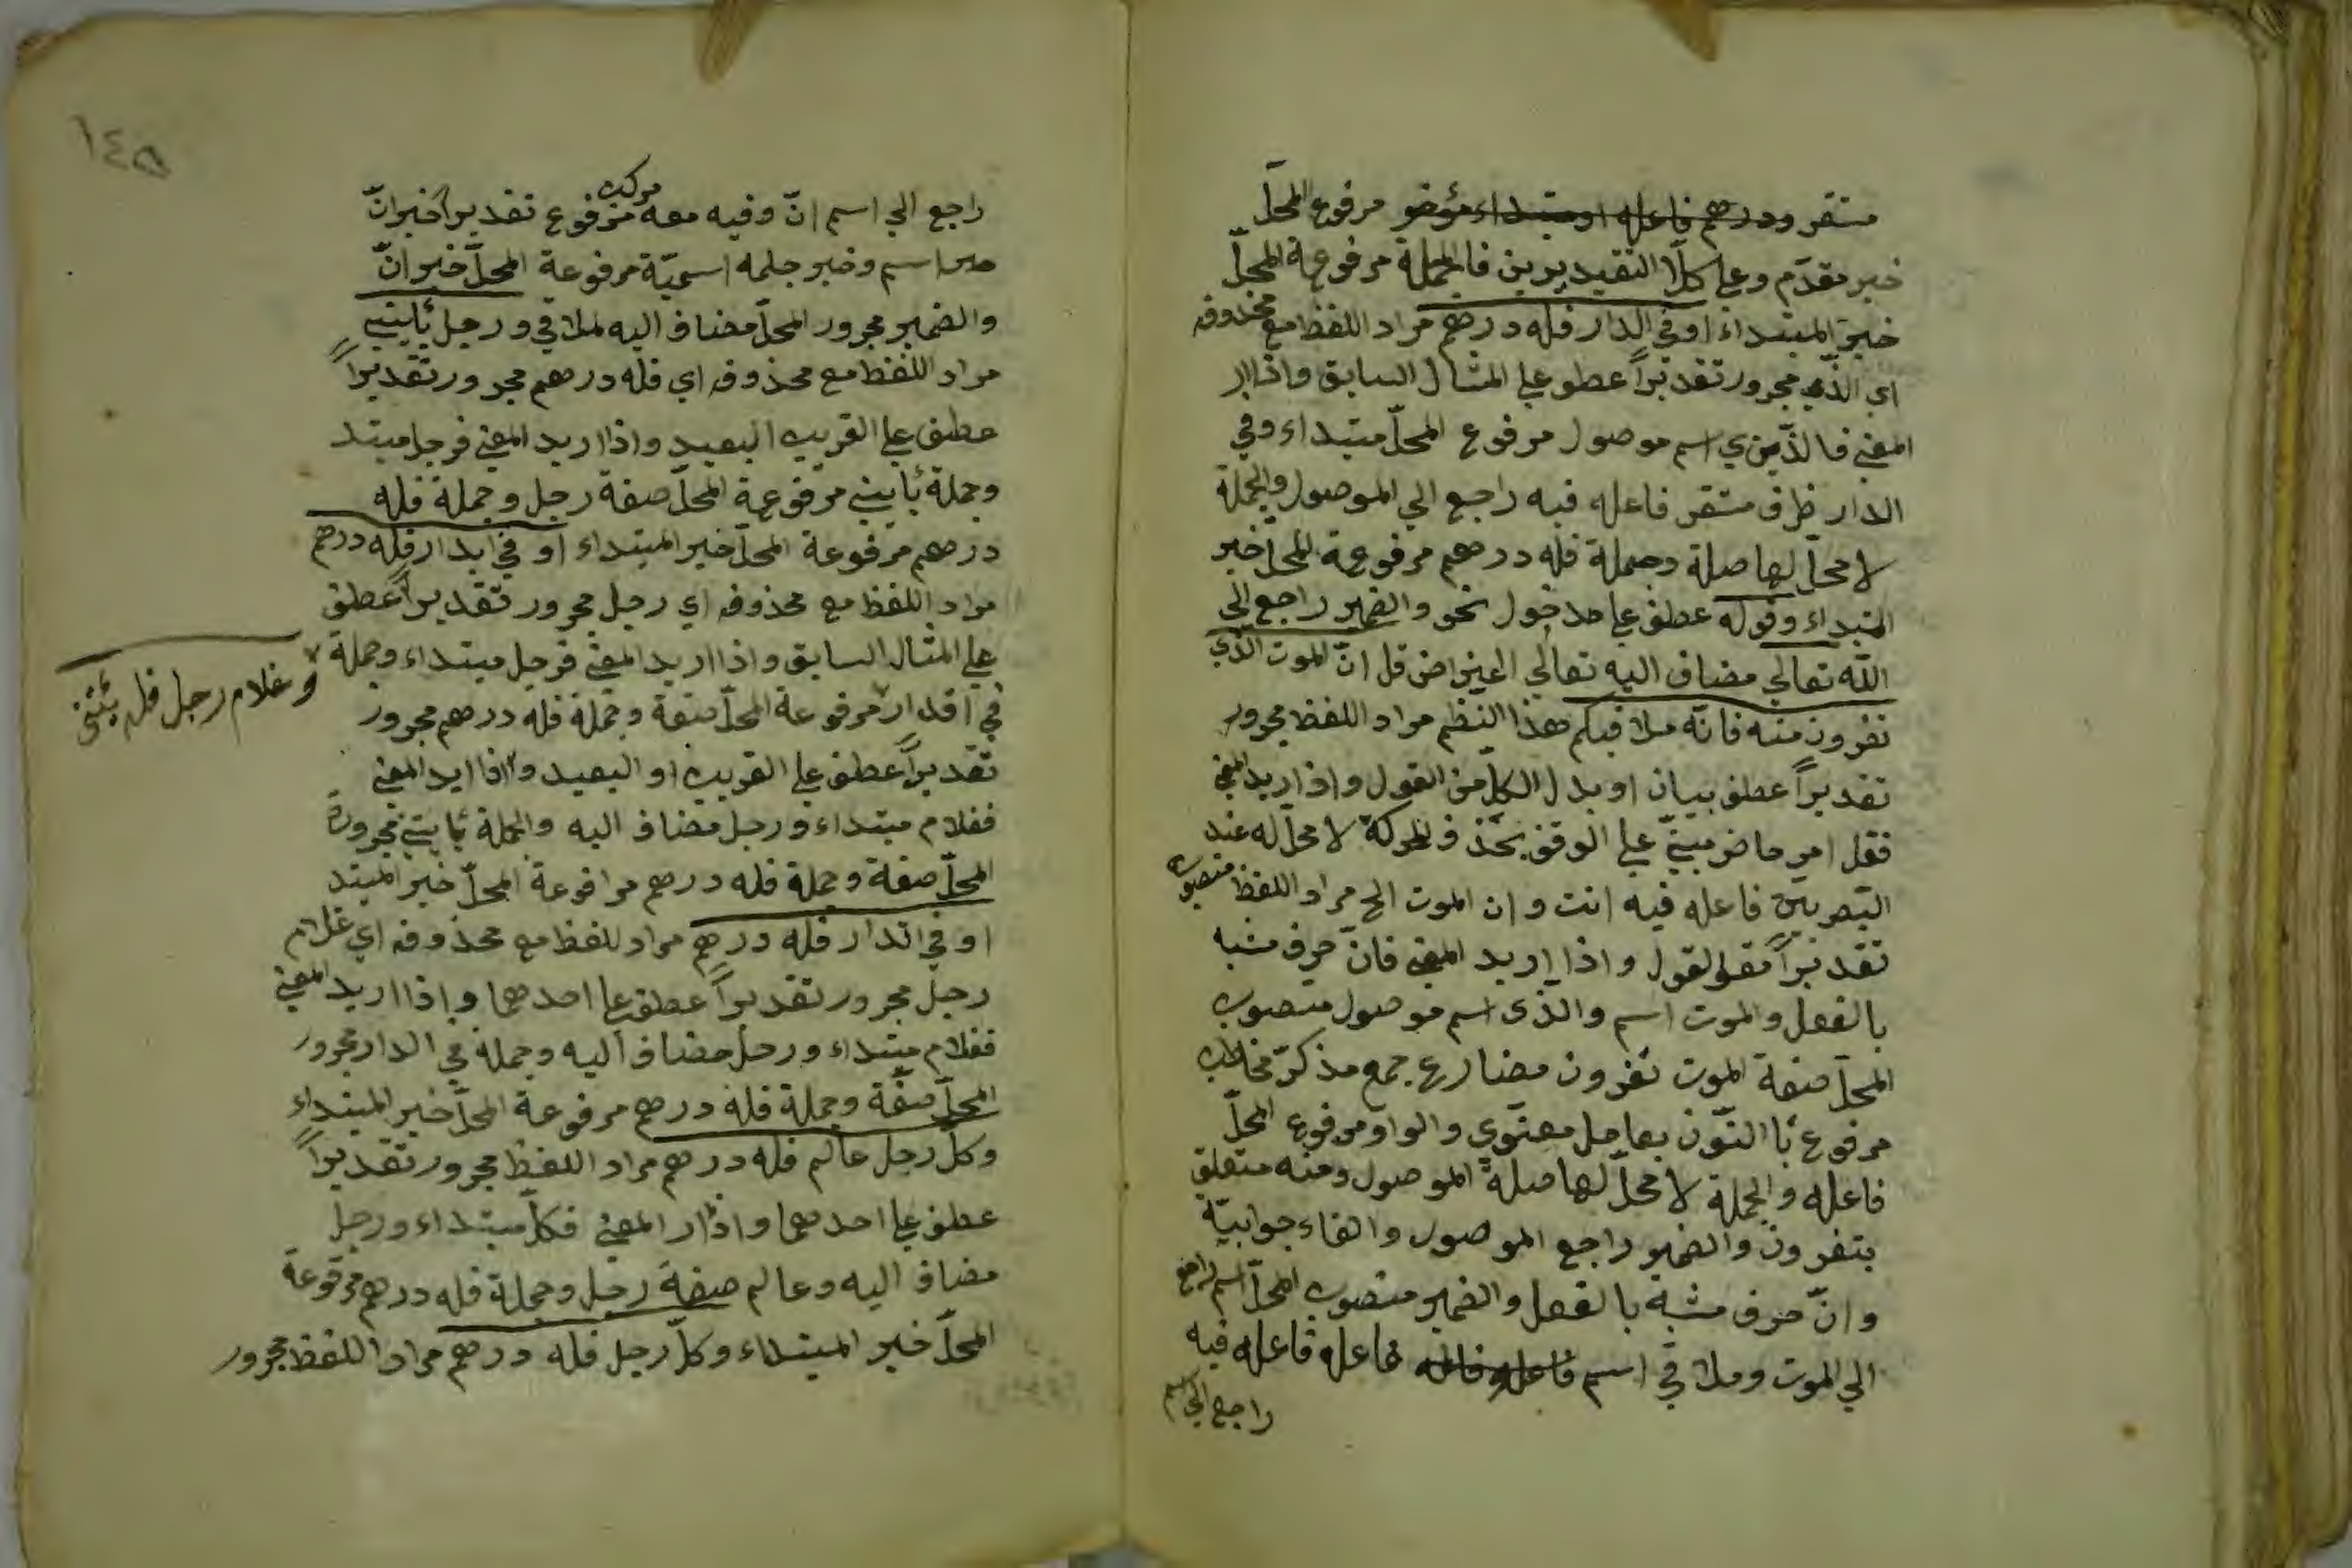 مستقر ودرهم فاعله او مبتداء مؤخر مرفوع المحلّ
خبر مقدّم وعلى كلا التقيديرين فالجملة مرفوعة المحلّ
خبر المبتداء او في الدار فله درهم مراد اللفظ مع محذوفه
اي الذّي مجرور تقديراً عطو على المثال السابق واذاار
المعني فالذّي اسم موصول مرفوع المحلّ مبتداء وفي
الدار ظرف مستقر فاعله فيه راجع الي الموصول والجملة
لا محلّ لها صلة وجملة فله درهم مرفوعة المحلّ خبر
المبتداء وقوله عطف على مدخول نحو والضمير راجع الي
اللّه تعالي مضاف اليه تعالي اعتراض قل انّ الموت الذّي
تفرون منه فانّه ملاقيكم هذا النظم مراد اللفظ مجرور
تقديراً عطف بيان او بدل الكلّ من القول واذاريد المعني
فقل امر حاضر مبنيّ على الوقف بحذف الحركة لا محلّ له عند
البصريين فاعله فيه انت وان الموت الخ مراد اللفظ منصوب
تقديراً مقول لقول واذا اريد المعني فانّ حرف مشبه
بالفعل والموت اسم والذّى اسم موصول منصوب
المحلّ صفة الموت تفرون مضارع جمع مذكرّ مخاطب
مرفوع باالنّون بعامل معنوي والواو مرفوع المحلّ
فاعله والجملة لا محلّ لها صلة الموصول ومنه متعلق
بتفرون والضمير راجع الموصول والفاء جوابيّة
وانّ حرف مشبة بالفعل والضمير منصوب المحلّ اسم راجع
الي الموت وملاقي اسم فاعله فاعله فاعله فاعله فيه
راجع الي اسم
١٤٥
راجع الي اسم انّ وفيه معه مرفوع تقديراً خبر انّ
مركب
من اسم وخبر جلمه اسميّة مرفوعة المحلّ خبر انّ
والضمير مجرور المحلّ مضاف اليه لملاقي ورجل يأتيني
مراد اللفظ مع محذوفه اي فله درهم مجرور تقديراً
عطف على القريب البعيد واذا اريد المعني فرجل مبتد
وجملة يأتيني مرفوعة المحلّ صفة رجل وجملة فله
درهم مرفوعة المحلّ خبر المبتداء او في ابدار فله درهم
مراد اللفظ مع محذوفه اي رجل مجرور تقديراً عطف
على المثال السابق واذا اريد المعني فرجل مبتداء وجملة
وغلام رجل فله يأتني
في اقدار مرفوعة المحلّ صفة وجملة فله درهم مجرور
تقديراً عطف على القريب او البعيد واذا ايد المعني
فغلام مبتداء ورجل مضاف اليه والجملة يأتيني مجرورة
المحلّ صفة وجملة فله درهم مرافوعة المحلّ خبر المبتد
او في الدار فله درهم مراد للفظ مع محذوفه اي غلام
رجل مجرور تقديراً عطف على احدهما واذا اريد المعني
فغلام مبتداء ورجل مضاف اليه وجملة في الدار مجرور
المحلّ صفّة وجملة فله درهم مرفوعة المحلّ خبر المبتداء
وكلّ رجل عالم فله درهم مراد اللفظ مجرور تقديراً
عطف على احدهما واذار المعني فكلّ مبتداء ورجل
مضاف اليه وعالم صفة رجل وجملة فله درهم مرفوعة
المحلّ خبر المبتداء وكلّ رجل فله درهم مراد اللفظ مجرور